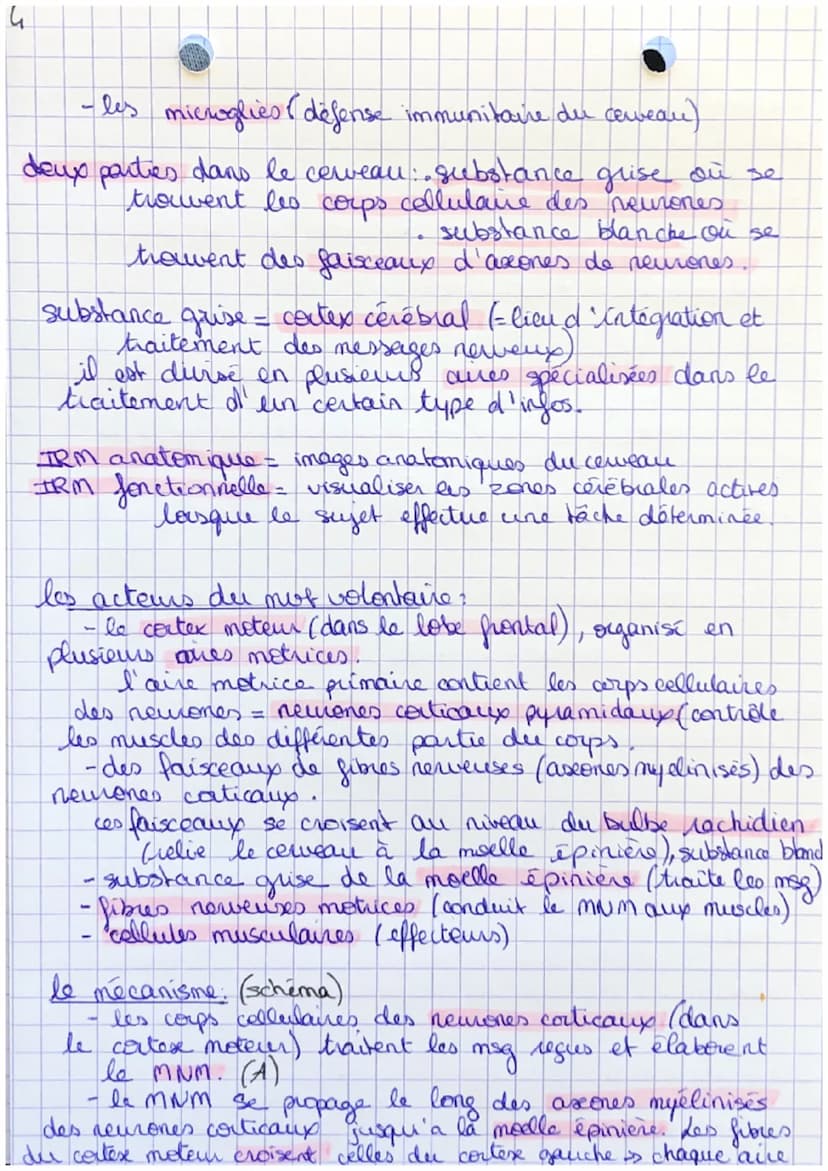 4
- les microglies (défense immunitaire du cerveau)
deux parties dans le cerveau : . substance grise où se
trouvent les corps cellulaire des neurones
. substance blanche où se
trouvent des faisceaux d'axones de neurones.
substance grise = cortex cérébral (= lieu d'intégration et
traitement des messages nerveux)
il est divisé en plusieurs aires spécialisées dans le
traitement d'un certain type d'infos.
IRM anatomique = images anatomiques du cerveau
IRM fonctionnelle = visualiser les zones cérébrales actives
lorsque le sujet effectue une tâche déterminée.
les acteurs du mvt volontaire :
- le cortex moteur (dans le lobe frontal), organisé en
plusieurs aires motrices.
l'aire motrice primaire contient les corps cellulaires
des neurones = neurones corticaux pyramidaux (contrôle
les muscles des différentes partie du corps.
- des faisceaux de fibres nerveuses (axones myélinisés) des
neurones corticaux.
ces faisceaux se croisent au niveau du bulbe rachidien
(relie le cerveau à la moelle épinière), substance blanc
- substance grise de la moelle épinière (traite les msg)
- fibres nerveuses motrices (conduit le MNM aux muscles)
- cellules musculaires (effecteurs)
le mécanisme : (schéma)
- les corps cellulaires des neurones corticaux (dans
le cortex moteur) traitent les msg reçus et élaborent
le MNM. (A)
- le MNM se propage le long des axones myélinisés
des neurones corticaux jusqu'a la moelle épinière. Les fibres
du cortex moteur croisent celles du cortex gauche ↳ chaque aire